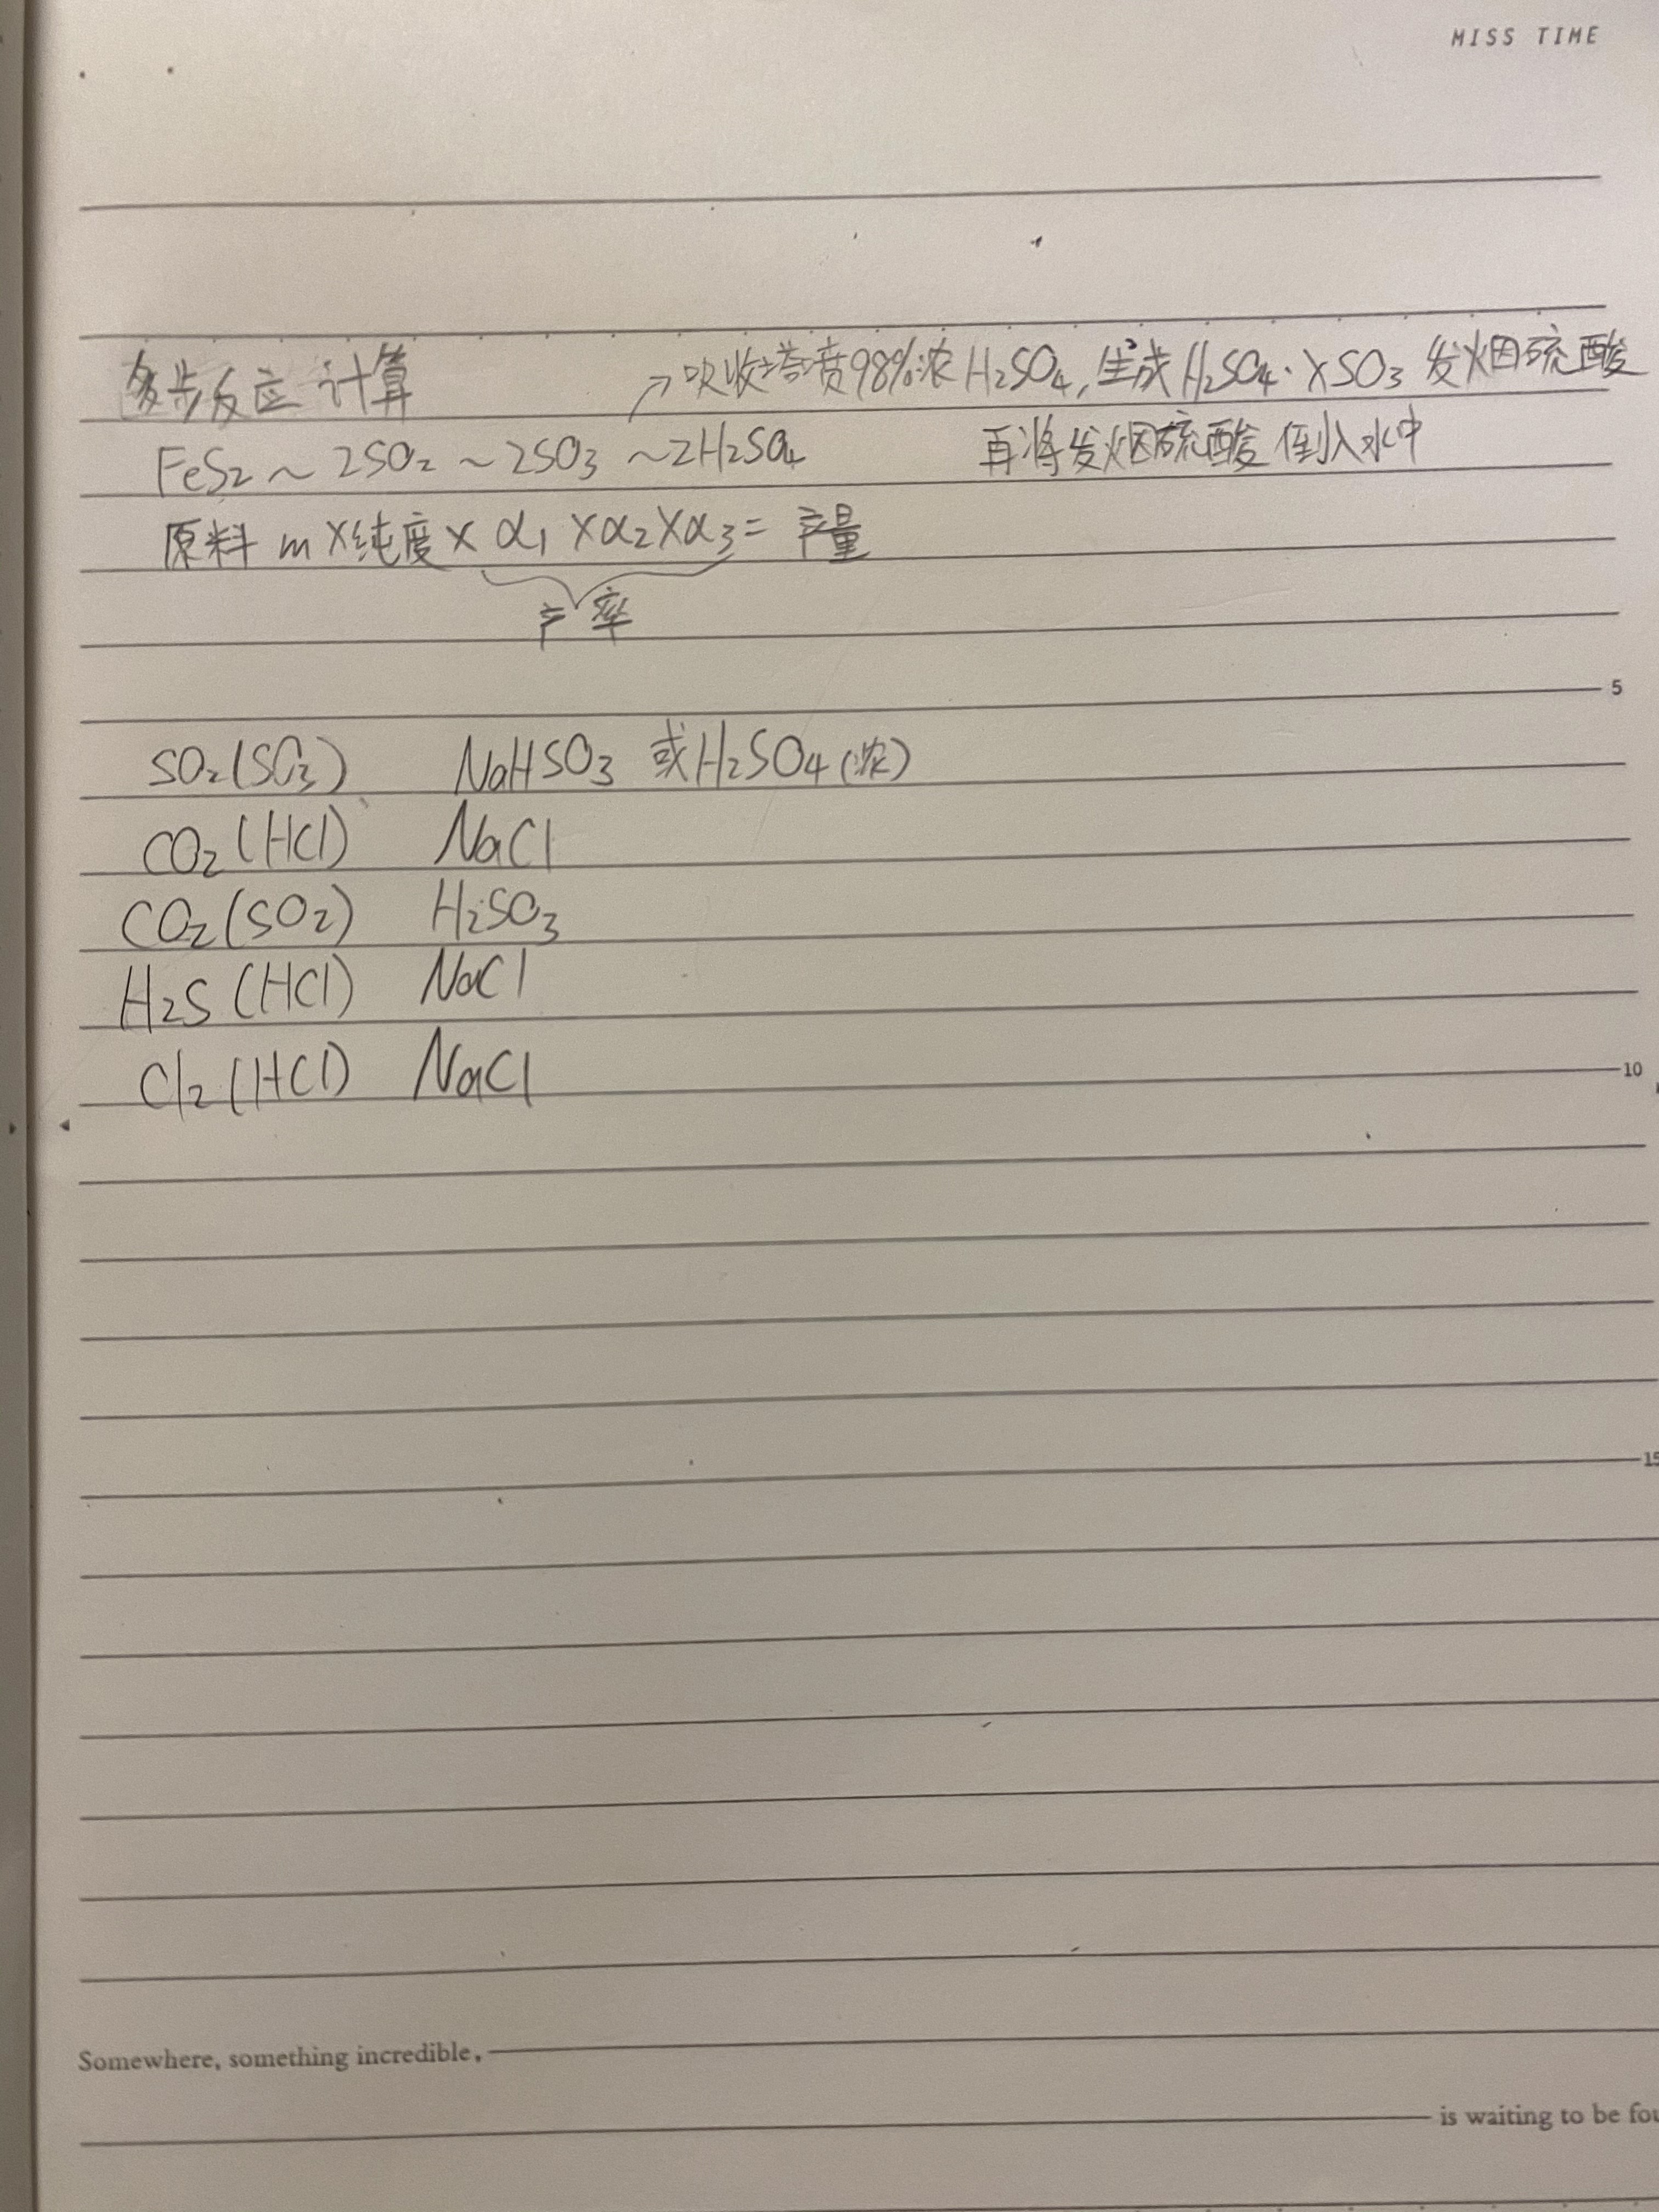 MISS TIME
多步反应计算
↗吸收塔喷98%浓H₂SO₄,生成H₂SO₄·XSO₃发烟硫酸
FeS₂~2SO₂~2SO₃~2H₂SO₄
再将发烟硫酸倒入水中
原料m×纯度×α₁×α₂×α₃=产量
产率
5
SO₂(SO₃) NaHSO₃或H₂SO₄(浓)
CO₂(HCl) NaCl
CO₂(SO₂) H₂SO₃
H₂S(HCl) NaCl
Cl₂(HCl) NaCl
10
15
Somewhere, something incredible,
is waiting to be fou